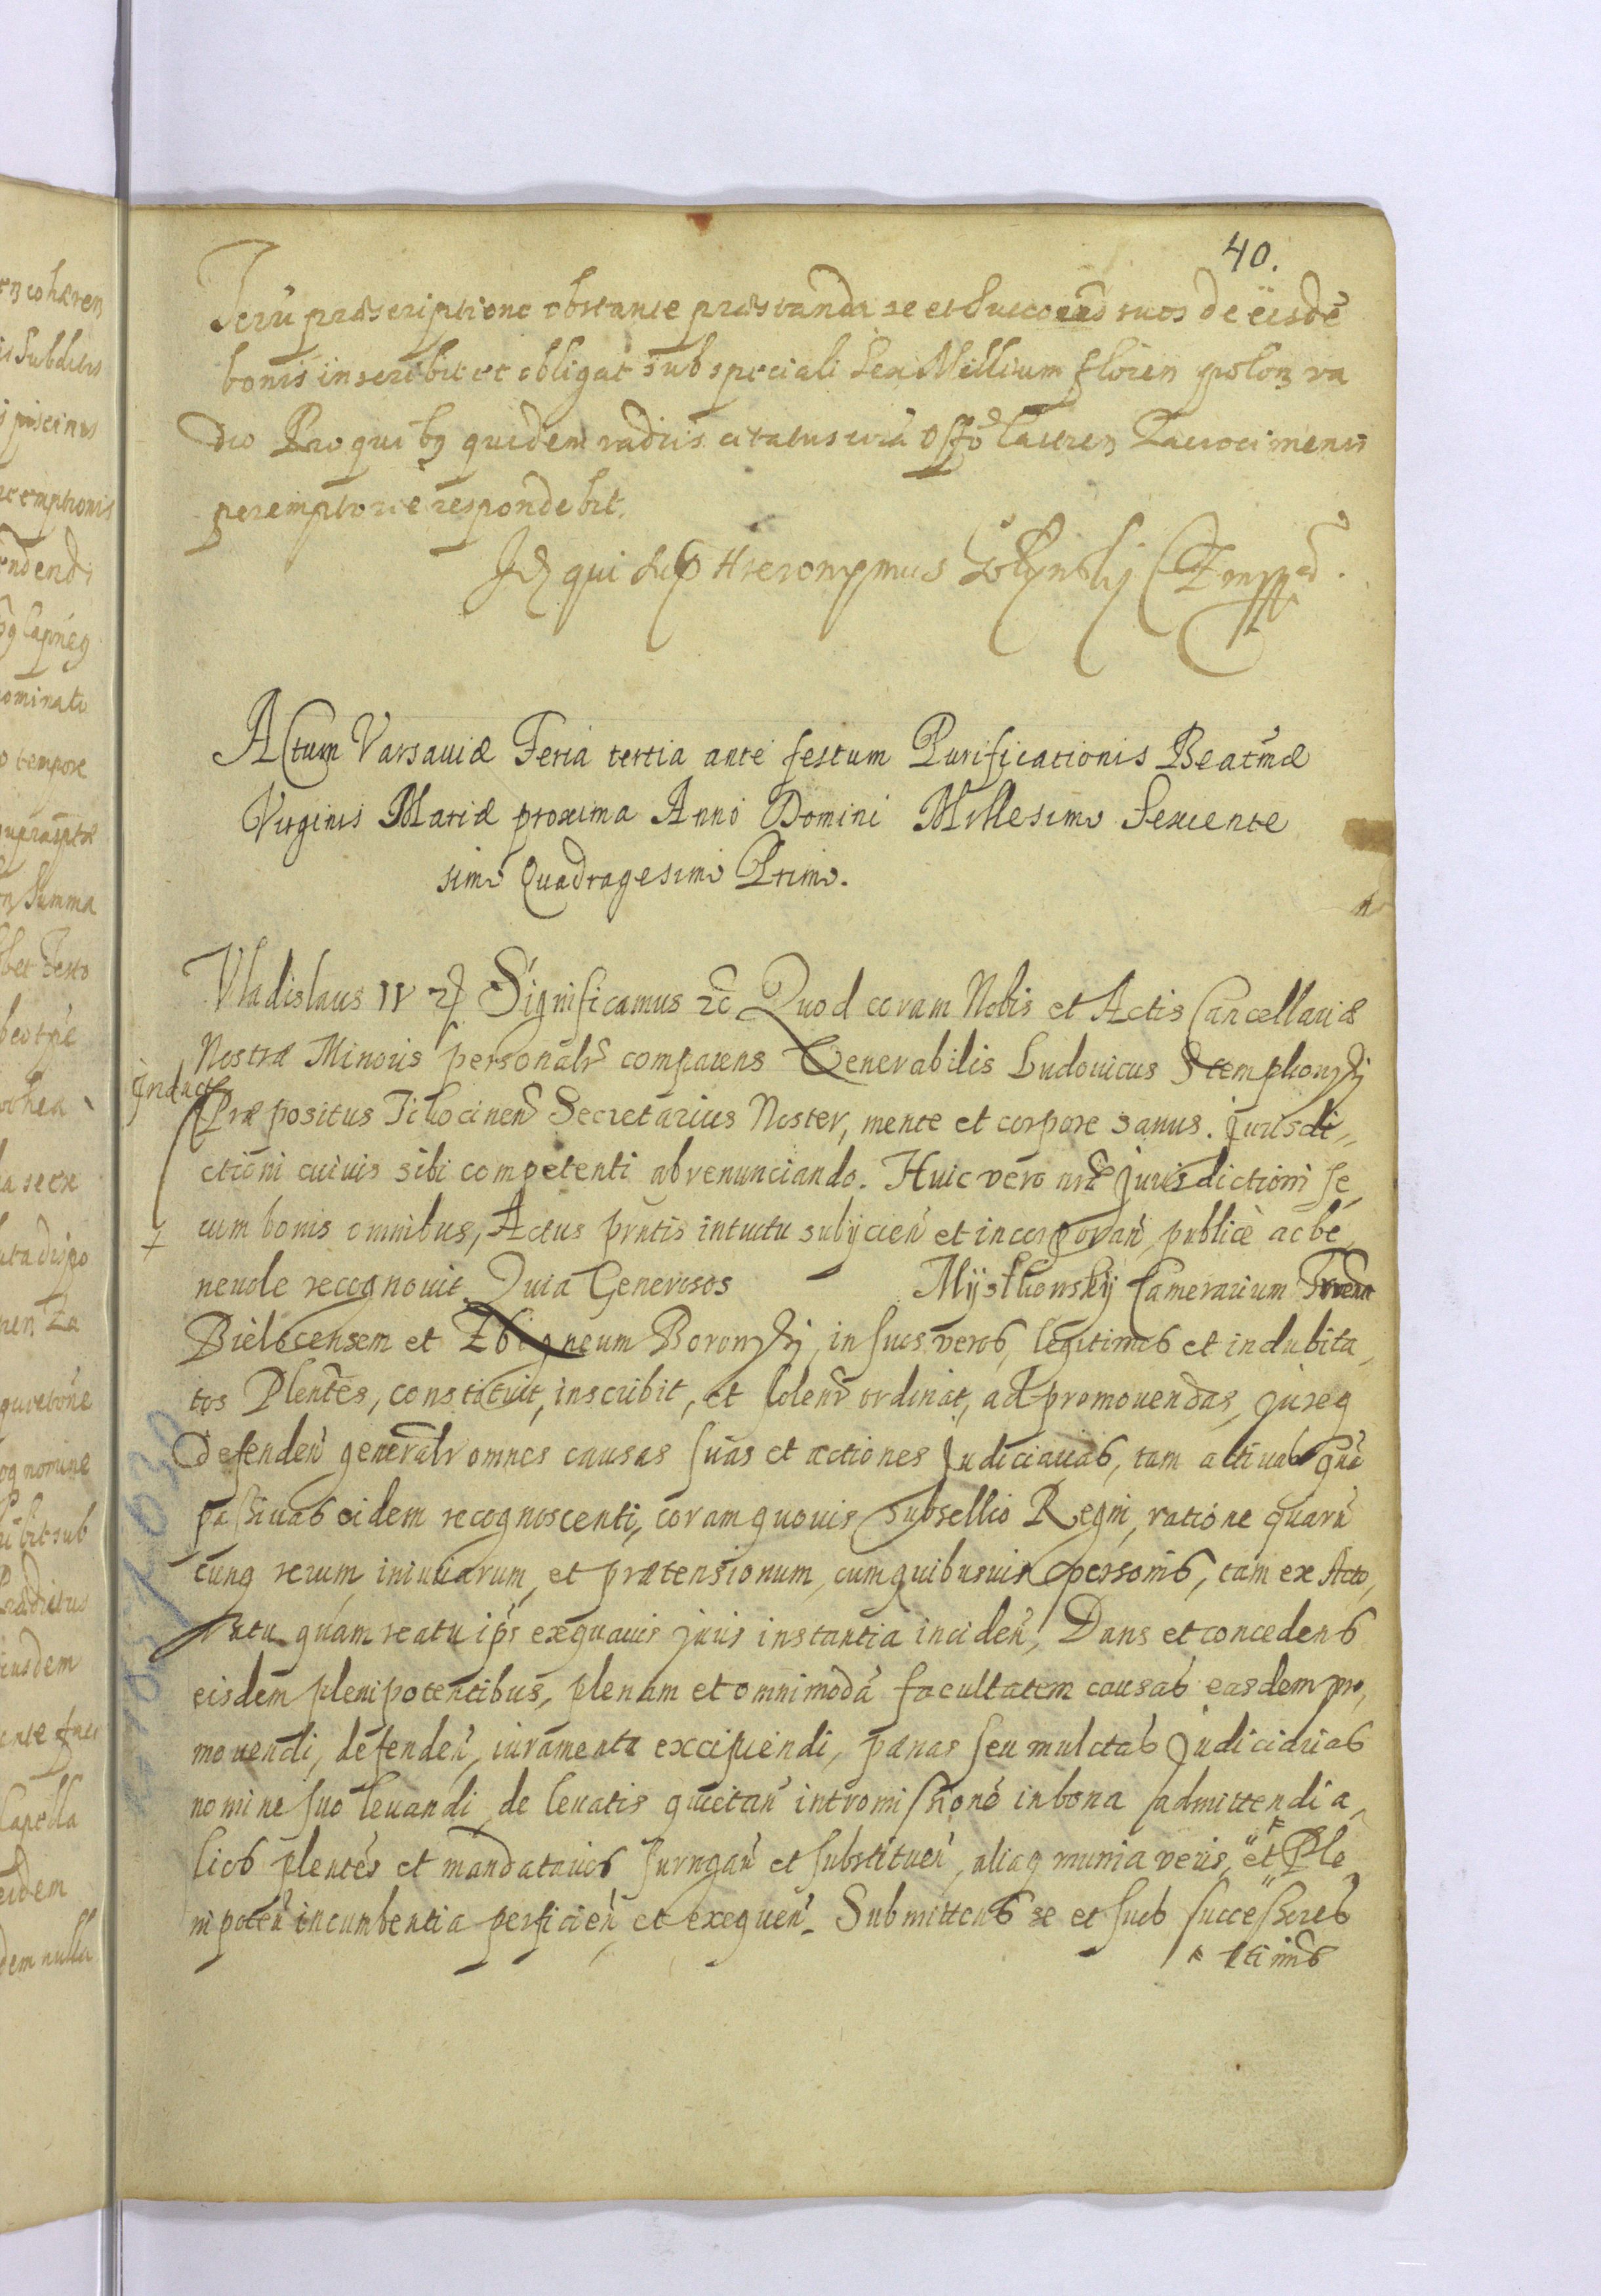 40.
Terrũ præscriptione obstante præstanda se et Succores suos de eisdẽ
bonis inscribit et obligat sub speciali Sex Millium floren polon va
dio Pro quibq quidem vadiis citatus corã Offo Castren
peremptorie respondebit.
Idem qui sup Hieronymus
Actum Varsaviæ Feria tertia ante festum Purificationis Beatmæ
Virginis Mariæ proxima Anno Domini Millesimo Sexcente
simo Quadragesimo Primo.
Vladislaus IV Significamus &c Quod coram Nobis et Actis Cancellariæ
Nostræ Minoris personalr comparens Venerabilis Ludovicus Stemphowski
Induct
Præpositus Tikocinen Secretarius Noster, mente et corpore sanus. Jurisdi„
ctioni cuivis sibi competenti abrenunciando. Huic vero nræ Jurisdictioni se,
cum bonis omnibus, Actus prntis intuitu subijcien et incorporan, publicè ac be,
nevole recognovit. Quia Generosos Myszkowskij Camerarium Terren
Bielscensem et Zbigneum Boronski, in suos veros, legitimos et indubita,
tos Plentes, constituit, inscribit, et solenr ordinat, ad promovendas, jureq
defenden generalr omnes causas suas et actiones Judiciarias, tam activas quã
passivas eidem recognoscenti, coram quovis subsellio Regni, ratione quarũ
cunq rerum, iniuriarum, et prætensionum, cum quibusvis personis, tam ex Acto,
ratu quam reatu ipsi ex quavis juris instantia inciden, Dans et concedens
eisdem plenipotentibus, plenam et omnimodã facultatem causas easdem pro,
movendi, defenden, iuramenta excipiendi, pænas seu mulctas Judiciarias
nomine suo levandi, de levatis quietan intromissiono in bona admittendi a,
lios plentes et mandatarios surrogan et substituen, aliaq munia veris, et Ple
nipoten incumbentia perficien, et exequen. Submittens se et suos successores
ltimis